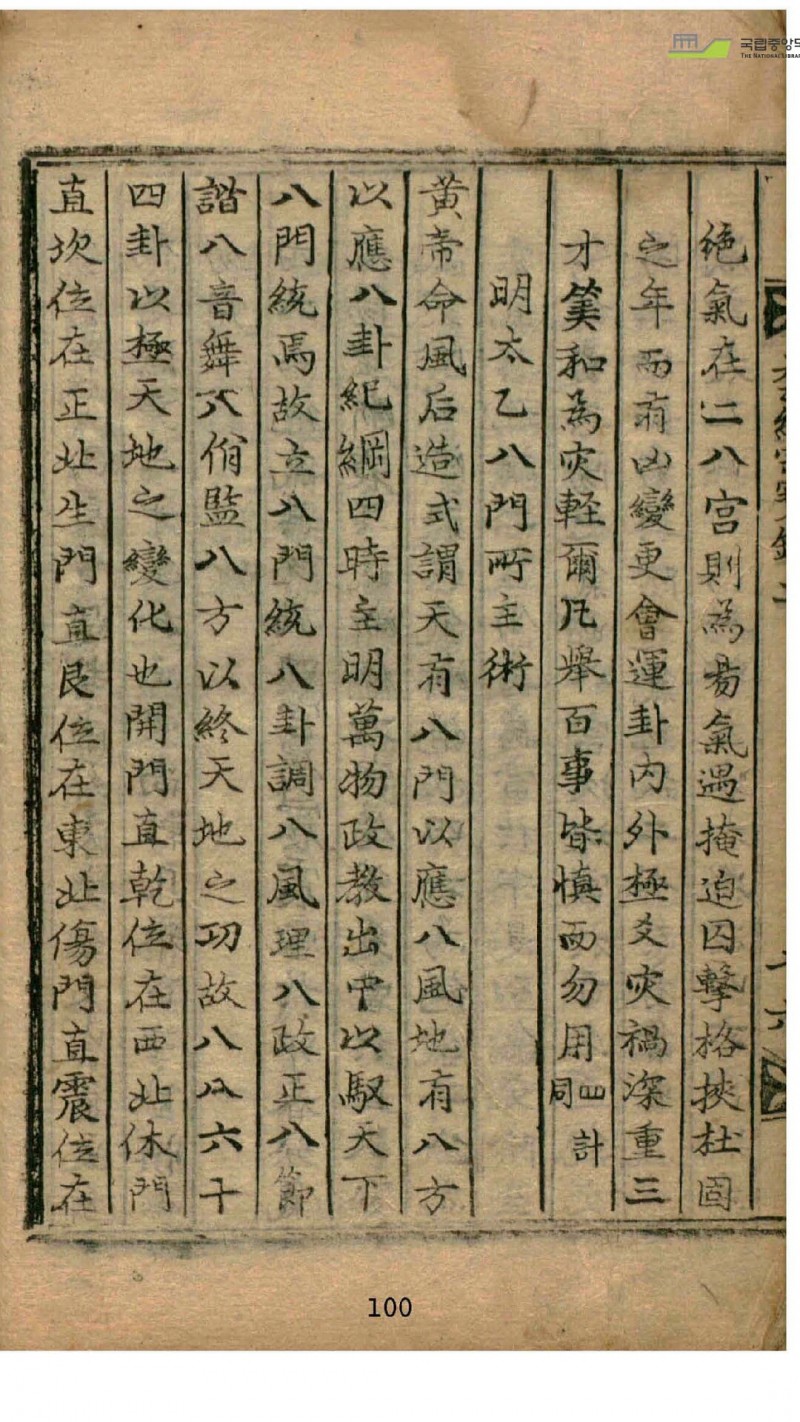 絶氣在二八宮則為昜氣遇掩迫囚擊格挾杜固
之年而有凶變更會運卦內外極爻灾禍深重三
才筭和為灾軽爾凡舉百事皆慎而勿用四計同
明太乙八門所主術
黃帝命風后造式謂天有八門以應八風地有八方
以應八卦紀綱四時主明萬物政教出中以馭天下
八門統焉故立八門統八卦調八風理八政正八節
諧八音舞八佾監八方以終天地之功故八八六十
四卦以極天地之變化也開門直乾位在西北休門
直坎位在正北生門直艮位在東北傷門直震位在
100
국립중앙도
THE NATIONAL LIBRA